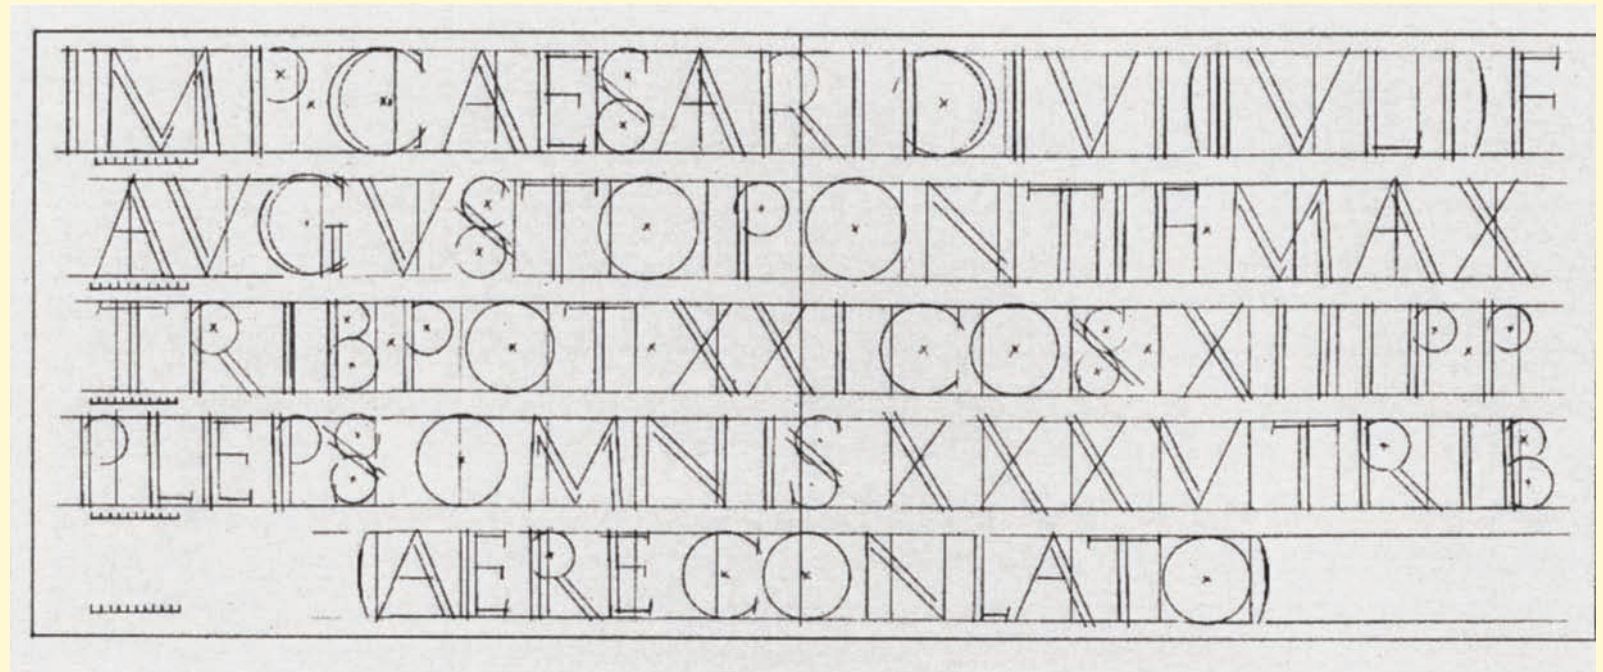 IMP·CAESARI DIVI (IVLI) F
AVGVSTO PONTIF·MAX
TRIB·POT·XXI COS·XIII P·P
PLEPS OMNIS XXXV TRIB
(AERE CONLATO)